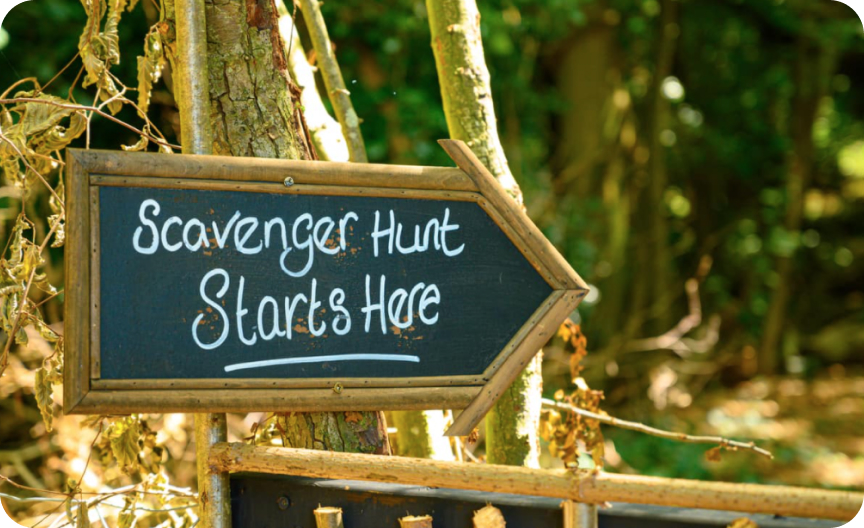 Scavenger Hunt
Starts Here